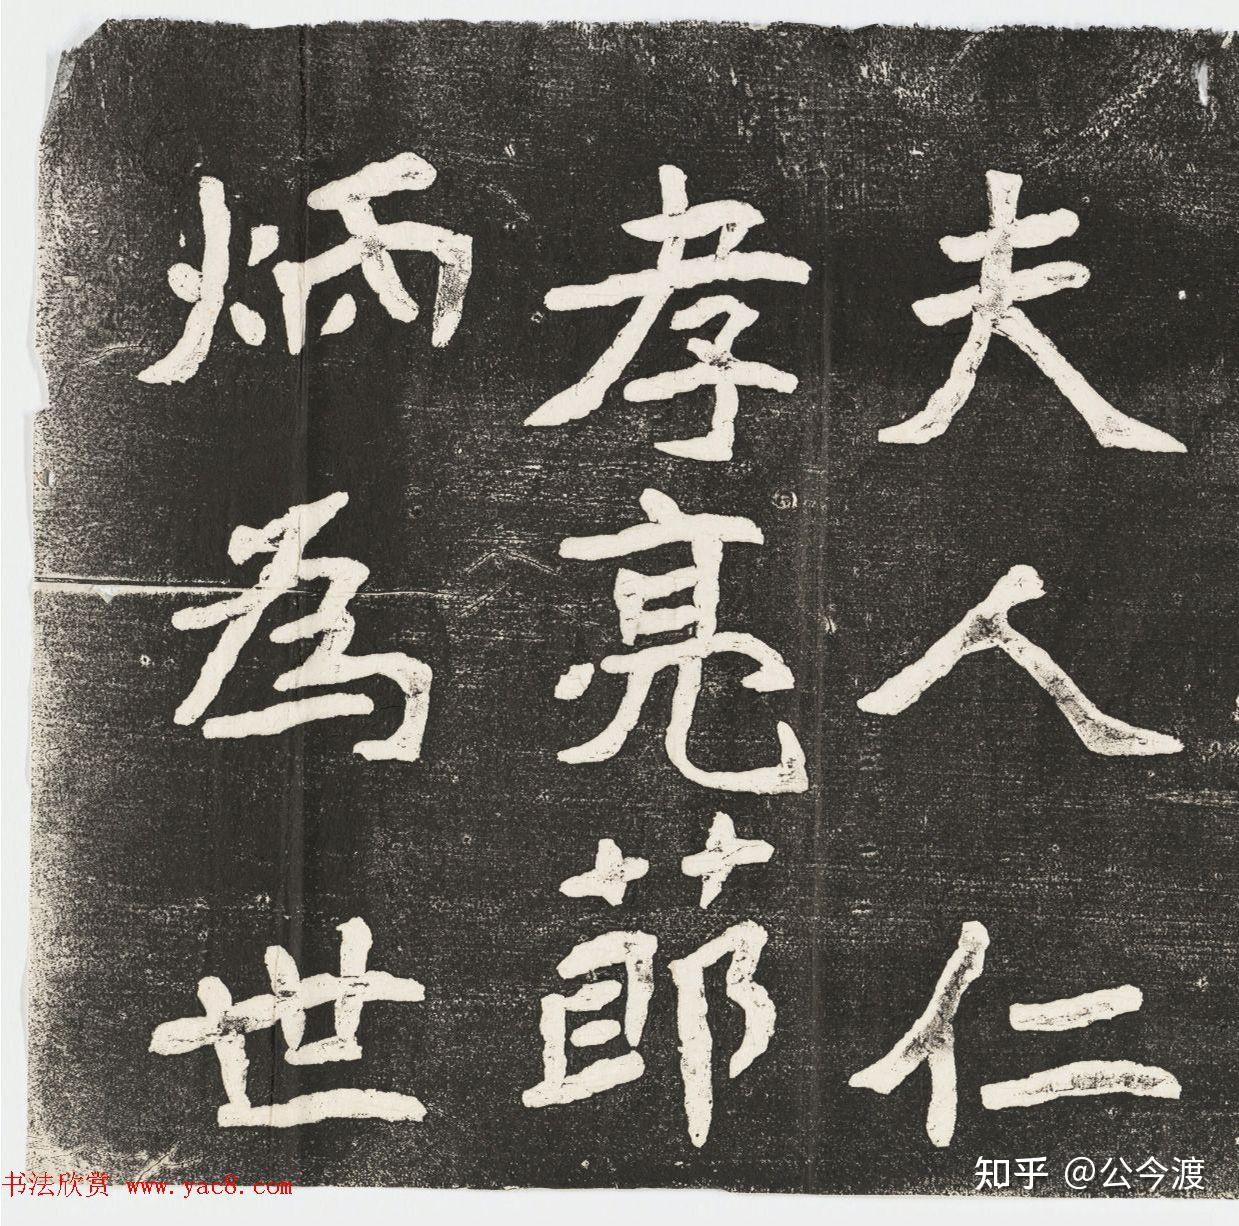 夫人仁
孝亮莭
炳為世
知乎 @公今渡
书法欣赏 www.yac8.com